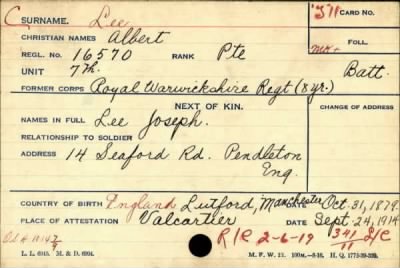 C SURNAME. Lee
CARD NO.
CHRISTIAN NAMES Albert
FOLL.
REGL. NO. 16570 RANK Pte
UNIT 7th. Batt.
FORMER CORPS Royal Warwickshire Regt (8 yr.)
NEXT OF KIN. CHANGE OF ADDRESS
NAMES IN FULL Lee Joseph.
RELATIONSHIP TO SOLDIER
ADDRESS 14 Seaford Rd. Pendleton
Eng.
COUNTRY OF BIRTH England Lutford, Manchester Oct. 31, 1879.
PLACE OF ATTESTATION Valcartier Sept. 24, 1914
R/C 2-6-19 341
L. L. 6945. M. & D. 6994. M. F. W. 22.